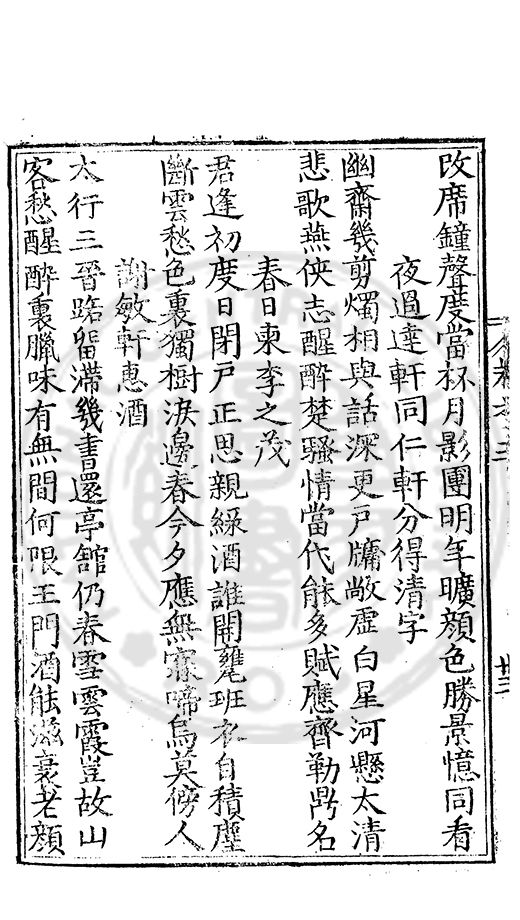 改席鐘聲度當杯月影團明年曠顏色勝景憶同看
夜過達軒同仁軒分得清字
幽齋幾剪燭相與話深更戸牗敞虛白星河懸太清
悲歌燕俠志醒醉楚騷情當代能多賦應齊勒鼎名
春日柬李之茂
君逢初度日閉戸正思親綠酒誰開甕班衣自積塵
斷雲愁色裏獨樹淚邊春今夕應無寐啼烏莫傍人
謝敏軒惠酒
太行三晉路畱滯幾書還亭舘仍春雪雲霞豈故山
客愁醒醉裏臘味有無間何限王門酒能滋衰老顏
卷之三
廿二